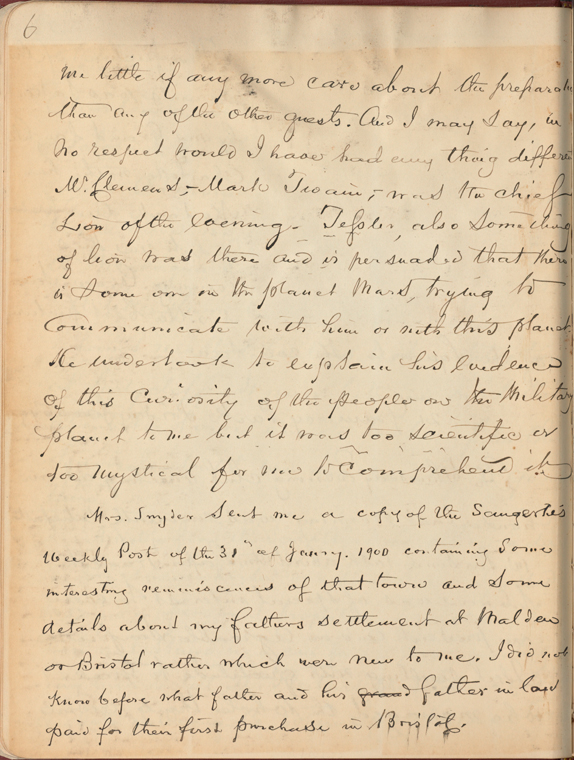 6
me little if any more care about the preparation
than any of the other guests. And I may say, in
no respect would I have had any thing different
Mr. Clemens,- Mark Twain,- was the chief
Lion of the evening. Tessler, also something
of lion was there and is persuaded that there
is some one in the planet Mars, trying to
communicate with him or with this planet.
He undertook to explain his evidence
of this curiosity of the people on the Military
planet to me but it was too scientific or
too mystical for me to comprehend it.
Mrs. Snyder sent me a copy of the Saugerties
Weekly Post of the 31st of Janry. 1900 containing some
interesting reminiscences of that town and some
details about my fathers settlement at Malden
or Bristol rather which were new to me. I did not
know before what father and his grand father in law
paid for their first purchase in Bristol.